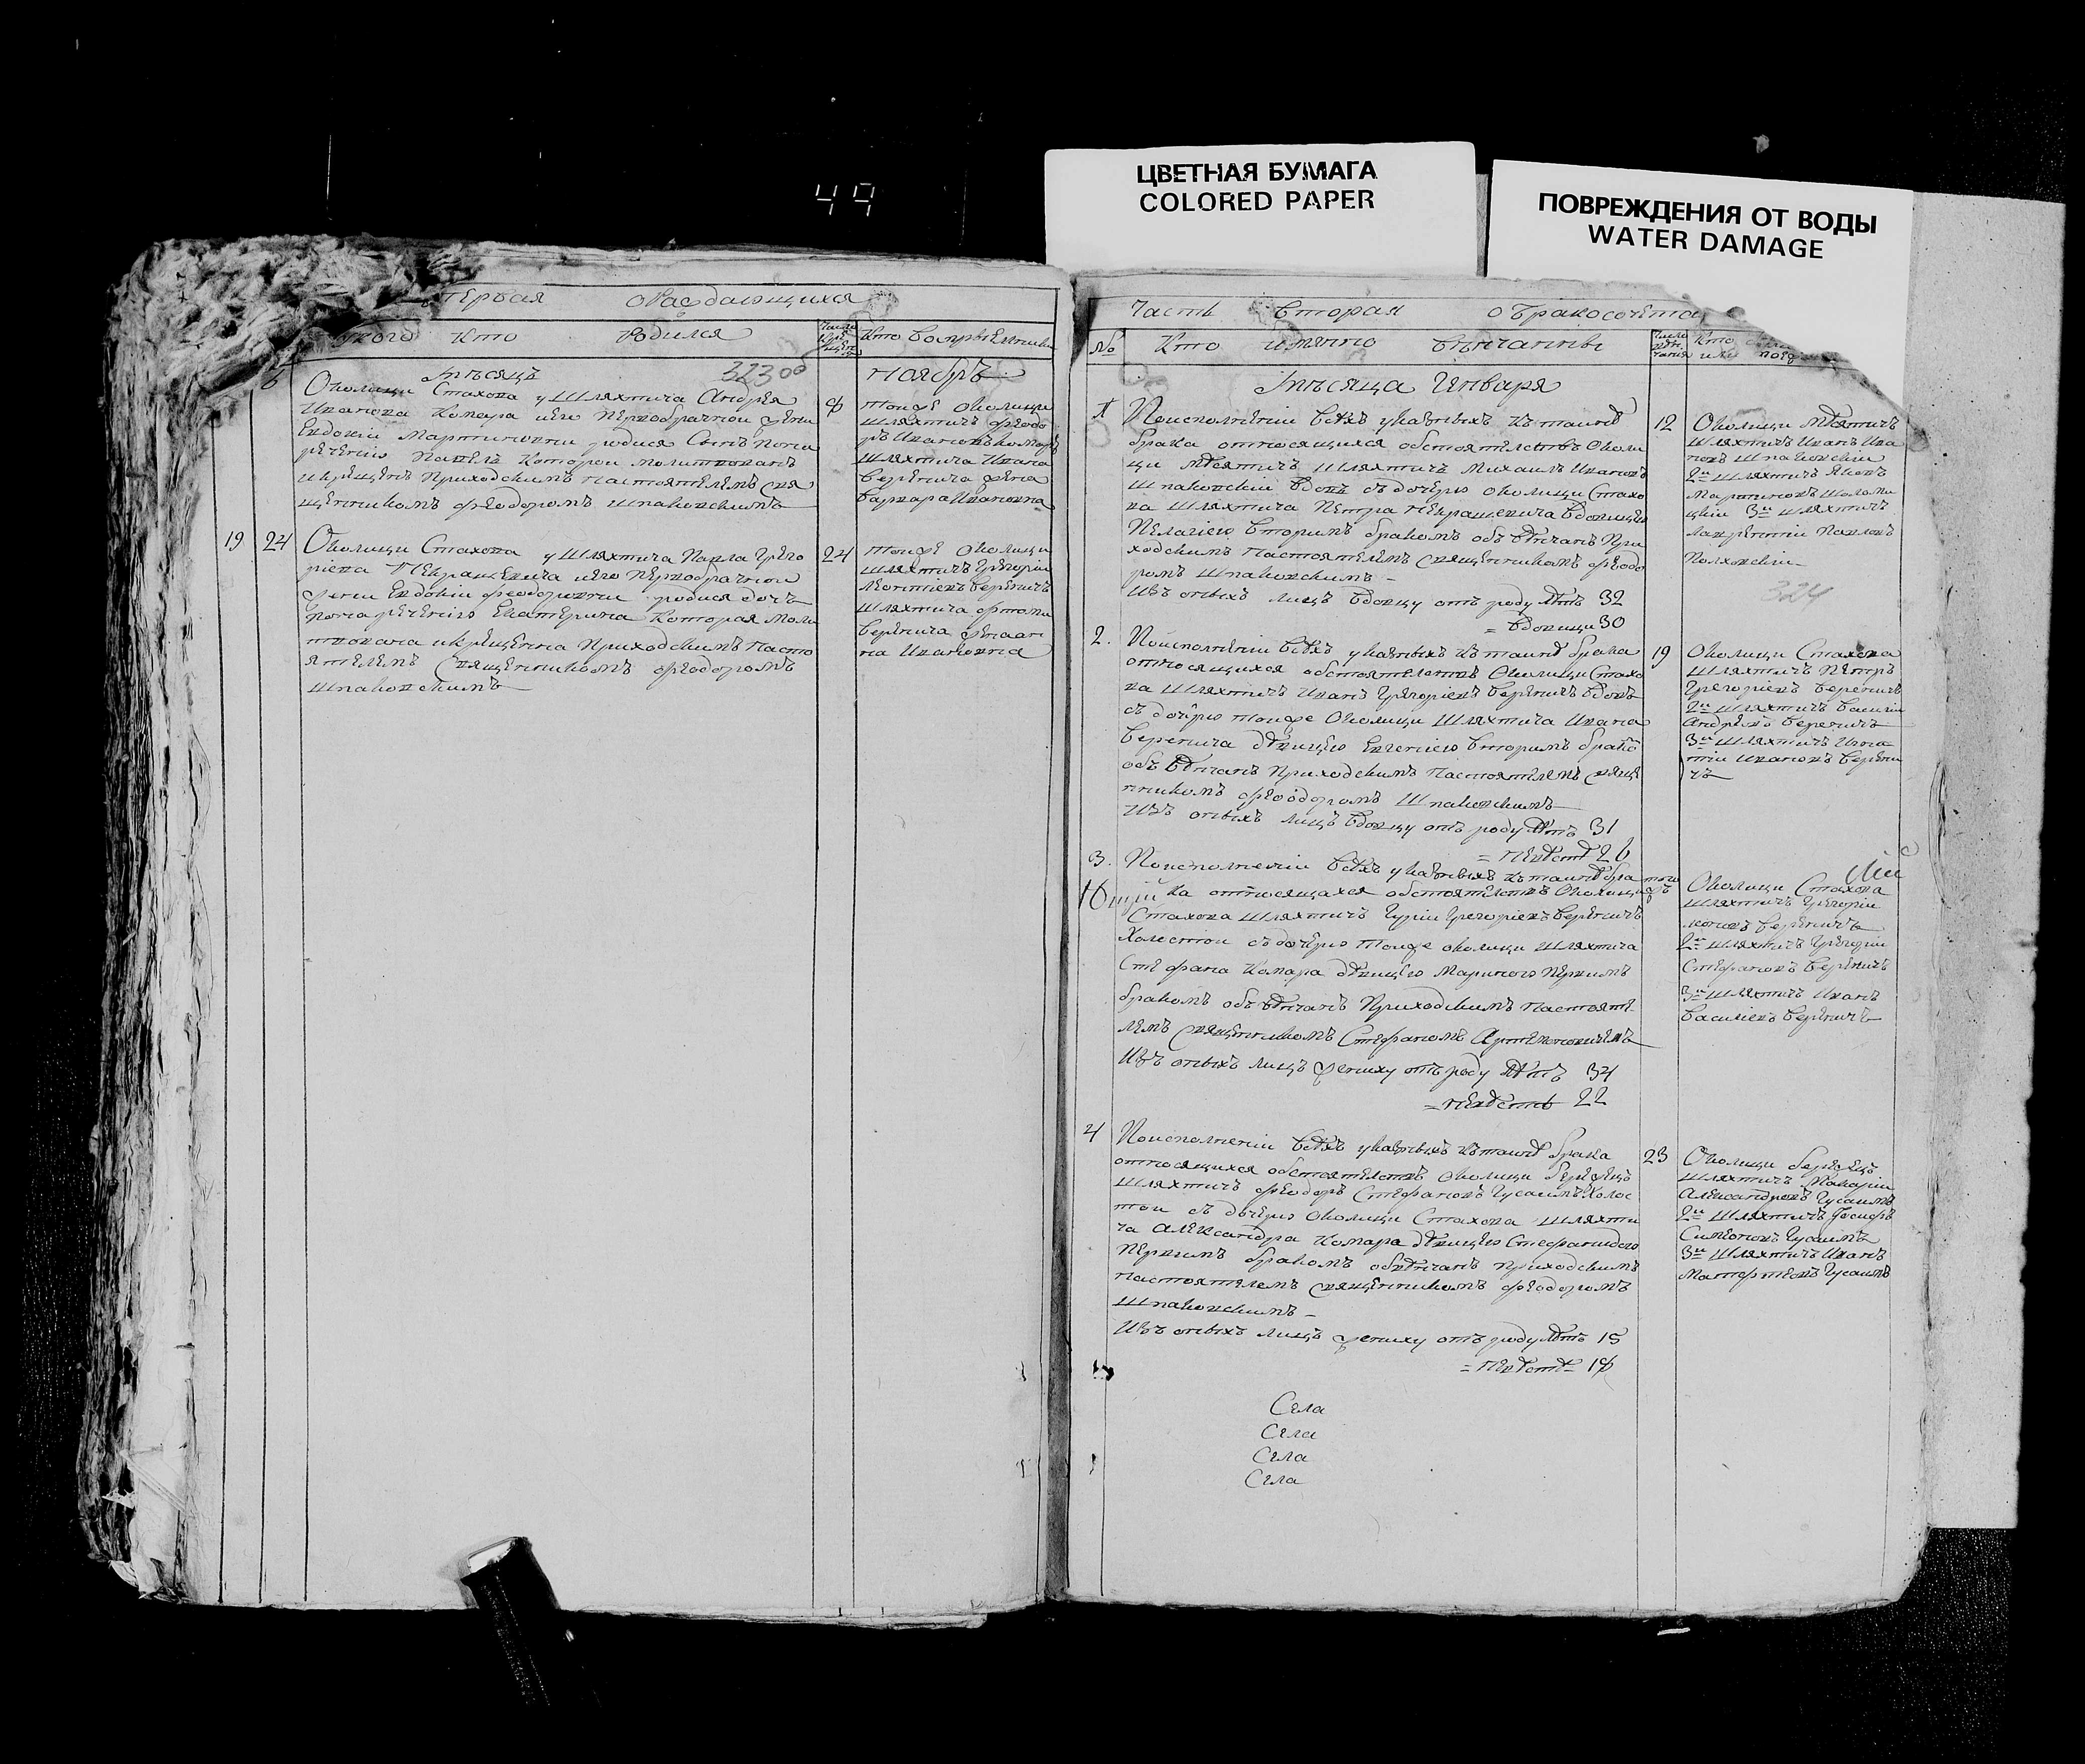 49
ЦВЕТНАЯ БУМАГА
COLORED PAPER
ПОВРЕЖДЕНИЯ ОТ ВОДЫ
WATER DAMAGE
Первая о Раждающихся
Кто Родился
Мѣсяцъ 323 Ноябрь
Околицы Стахова у Шляхтича Андрея
Иванова Комара и его первобрачной жены
Евдокіи Мартиновны родися Сынъ
Павелъ которой молитвованъ
и крещенъ Приходскимъ настоятелемъ свя
щенникомъ Феодоромъ Шпаковскимъ
тоиже Околицы
Шляхтичъ Феодо
ръ Ивановъ Комаръ
Шляхтича Ивана
Веренича жена
Варвара Ивановна
19 24 Околицы Стахова у Шляхтича Павла Григо
ріева Некрашевича и его первобрачной
жены Евдокіи Феодоровны родися дочь
Екатерина Которая моли
твована и крещенна Приходскимъ насто
ятелемъ Священникомъ Феодоромъ
Шпаковскимъ
24 тоиже Околицы
Шляхтичъ Григорій
Леонтіевъ Вереничъ
Шляхтича
Веренича жена
на Ивановна
Часть вторая о бракосочета
№ Кто имянно вѣнчанны
Мѣсяца Января
1 По исполненіи всѣхъ указныхъ къ таинѣ
брака относящихся обстоятельствъ Околи
цы Мѣсятичъ Шляхтичъ Михаилъ Ивановъ
Шпаковскій вдовъ съ дочерью околицы Стахо
ва Шляхтича Петра Некрашевича вдовицею
Пелагіею вторимъ бракомъ обвѣнчанъ При
ходскимъ настоятелемъ священникомъ Феодо
ромъ Шпаковскимъ
Изъ оныхъ лицъ вдовцу отъ роду лѣтъ 32
= вдовицы 30
12 Околицы Мѣсятичъ
Шляхтичъ Иванъ Ива
новъ Шпаковскій
2й Шляхтичъ Яковъ
Мартиновъ Шоломи
цкій 3й Шляхтичъ
Лаврентій Павловъ
Полховскій
324
2. По исполненіи всѣхъ указныхъ къ таинѣ брака
относящихся обстоятельствъ Околицы Стахо
ва Шляхтичъ Иванъ Григоріевъ Вереничъ вдовъ
съ дочерью тоиже Околицы Шляхтича Ивана
Веренича дѣвицею Евгеніею вторимъ брако
обвѣнчанъ Приходскимъ настоятелемъ свяще
нникомъ Феодоромъ Шпаковскимъ
Изъ оныхъ лицъ вдовцу отъ роду лѣтъ 31
= невѣстѣ 26
19 Околицы Стахова
Шляхтичъ Петръ
Григоріевъ Вереничъ
2й Шляхтичъ Василій
Андреевъ Вереничъ
3й Шляхтичъ Игна
тій Ивановъ Верени
чъ
3. По исполненіи всѣхъ указныхъ къ таинѣ бра
ка относящихся обстоятельствъ Околицы
Стахова Шляхтичъ Гурій Григоріевъ Вереничъ
Холостой съ дочерью тоиже околицы Шляхтича
Стефана Комара дѣвицею Мариною первимъ
бракомъ обвѣнчанъ Приходскимъ настояте
лемъ священникомъ Стефаномъ
Изъ оныхъ лицъ жениху отъ роду лѣтъ 34
= невѣсть 22
Околицы Стахова
Шляхтичъ Григорій
Вереничъ
2й Шляхтичъ Григорій
Стефановъ Вереничъ
3й Шляхтичъ Иванъ
Василіевъ Вереничъ
4 По исполненіи всѣхъ указныхъ къ таинѣ брака
относящихся обстоятельствъ Околицы Бережцъ
Шляхтичъ Феодоръ Стефановъ Гусаимъ Холос
той съ дочерью Околицы Стахова Шляхти
ча Александра Комара дѣвицею Стефанидою
первимъ бракомъ обвѣнчанъ Приходскимъ
настоятелемъ священникомъ Феодоромъ
Шпаковскимъ
Изъ оныхъ лицъ жениху отъ роду лѣтъ 15
= невѣстѣ
23 Околицы Бережцъ
Шляхтичъ Макарій
Александровъ Гусаимъ
2й Шляхтичъ Іосифъ
Симеоновъ Гусаимъ
3й Шляхтичъ Иванъ
Матфеевъ Гусаимъ
Села
Села
Села
Села